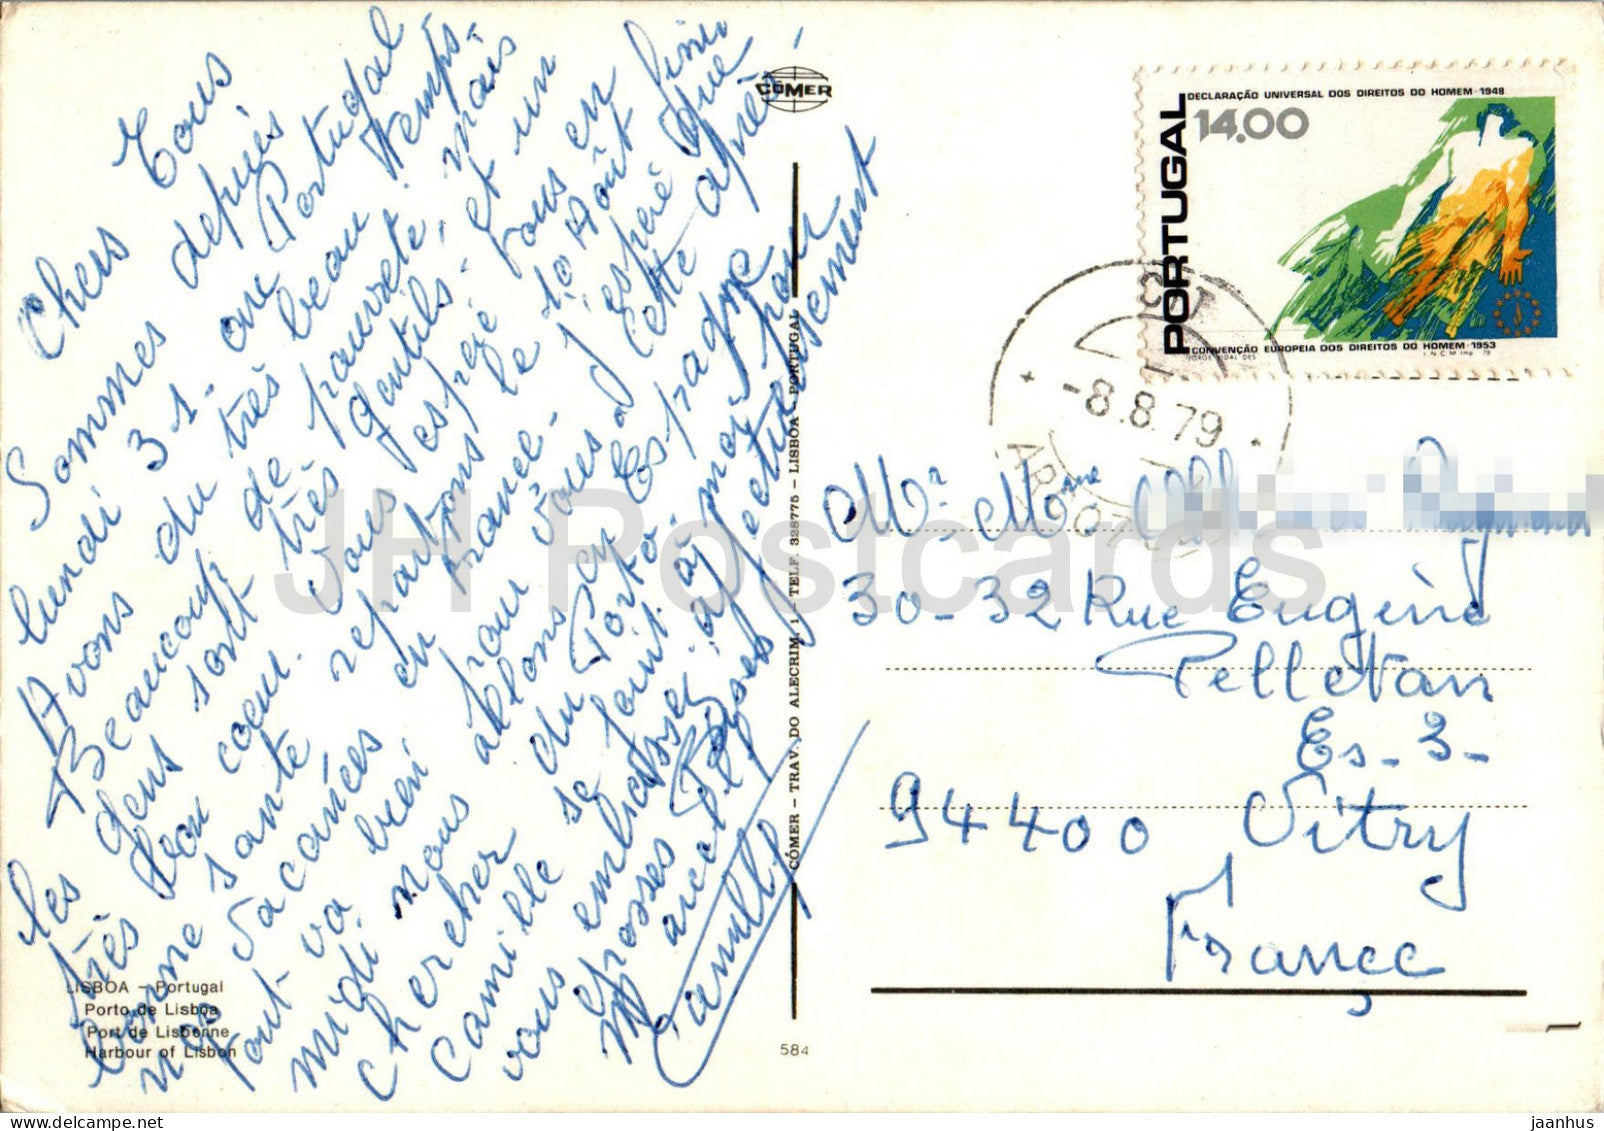 Chers Tous
Sommes depuis
lundi 31 - au Portugal
Avons du très beau temps -
Beaucoup de pauvreté, mais
les gens sont très gentils - et un
très bon coeur. Vous espérez tous en
bonne santé repartons le 10 Août finir
nos vacances en France - J'espère que
tout va bien pour vous - cette après-
midi nous allons en Espagne
chercher du Porto - pour
Camille se joint à moi
vous embrasser affectueusement
grosses Bises
Marcelle
Camille
LISBOA - Portugal
Porto de Lisboa
Port de Lisbonne
Harbour of Lisbon
CÔMER
CÔMER - TRAV. DO ALECRIM, 1 - TELF. 328775 - LISBOA - PORTUGAL
584
DECLARAÇÃO UNIVERSAL DOS DIREITOS DO HOMEM · 1948
14.00
PORTUGAL
CONVENÇÃO EUROPEIA DOS DIREITOS DO HOMEM · 1953
JORGE VIDAL DES.
I N C M Imp. 78
CTT
-8.8.79
Mr. Mme
30-32 Rue Eugène
Pelletan
Es-3-
94400 Vitry
France
JH Postcards
jaanhus